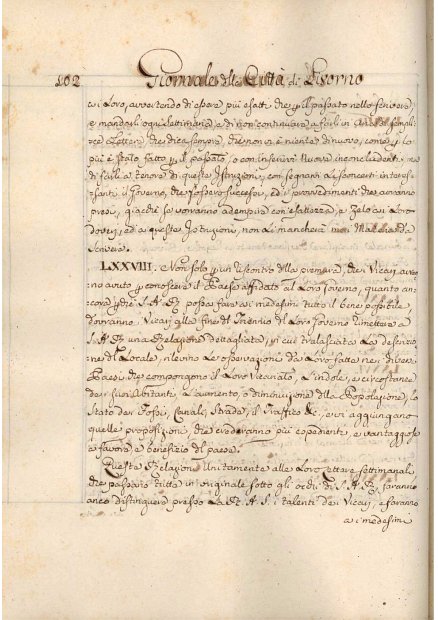 102 Giornale della Città di Livorno
ti Loro, avvertendo di essere più esatti, che p. il passato nello scrivere,
e mandarli ogni settimana, e di non continuare a farli in
Lettere, che dica sempre, che non v'è niente di nuovo, come p. lo
più è stato fatto p. il passato, o con inserirvi nuove, ma
di farli a tenore di queste Istruzioni, con segnarvi li sconcerti interes-
santi il Governo, che fossero successi, ed i provvedimenti che avranno
presi, giacchè se vorranno adempire con esattezza, e zelo ai Loro
doveri, ed a queste Istruzioni, non Li mancherà mai Materia da
scrivere.
LXXVIII. Non solo p. un riscontro della premura, che i Vicarj avran-
no avuto p. conoscere il Paese affidato al Loro Governo, quanto an-
cora p. chè S. A. R. possa fare ai medesimi tutto il bene possibile,
dovranno i Vicarj alla fine del Triennio del Loro Governo rimettere a
S. A. R. una Relazione dettagliata, in cui tralasciata la descrizio-
ne del Locale, rilevino Le osservazioni da Loro fatte nei diversi
Paesi che compongono il Loro Vicariato, L'indole, e circostanze
dei suoi Abitanti, L'aumento, o diminuzione della Popolazione, lo
Stato dei Fossi, Canali, Strade, il Traffico &c., e vi aggiungano
quelle proposizioni, che crederanno più espedienti, e vantaggiose
a favore, e benefizio del paese.
Questa Relazione Unitamente alle Loro Lettere settimanali
che passano tutte in originale sotto gli occhi di S. A. R., faranno
anco distinguere presso La R. A. S. i talenti dei Vicarj, e faranno
ai medesimi